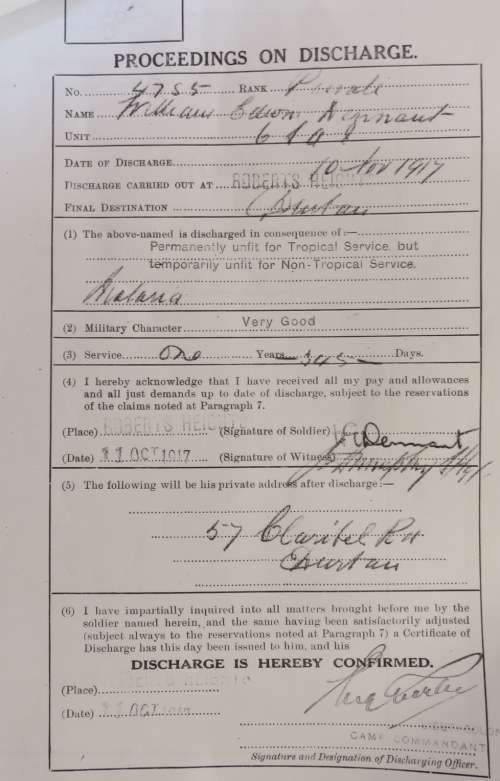 PROCEEDINGS ON DISCHARGE.
No. 4755 RANK Private
NAME William Edwin Dennant
UNIT 6
DATE OF DISCHARGE 10 Nov 1917
DISCHARGE CARRIED OUT AT ROBERTS HEIGHTS
FINAL DESTINATION Durban
(1) The above-named is discharged in consequence of:—
Permanently unfit for Tropical Service, but
temporarily unfit for Non-Tropical Service.
Malaria
(2) Military Character Very Good
(3) Service One Years 345 Days.
(4) I hereby acknowledge that I have received all my pay and allowances
and all just demands up to date of discharge, subject to the reservations
of the claims noted at Paragraph 7.
(Place) ROBERTS HEIGHTS (Signature of Soldier) Dennant
(Date) 11 OCT 1917 (Signature of Witness)
(5) The following will be his private address after discharge:—
57 Claribel Rd
Durban
(6) I have impartially inquired into all matters brought before me by the
soldier named herein, and the same having been satisfactorily adjusted
(subject always to the reservations noted at Paragraph 7) a Certificate of
Discharge has this day been issued to him, and his
DISCHARGE IS HEREBY CONFIRMED.
(Place) ROBERTS HEIGHTS
(Date) 11 OCT 1917
LIEUT-COLON
CAMP COMMANDANT
Signature and Designation of Discharging Officer.